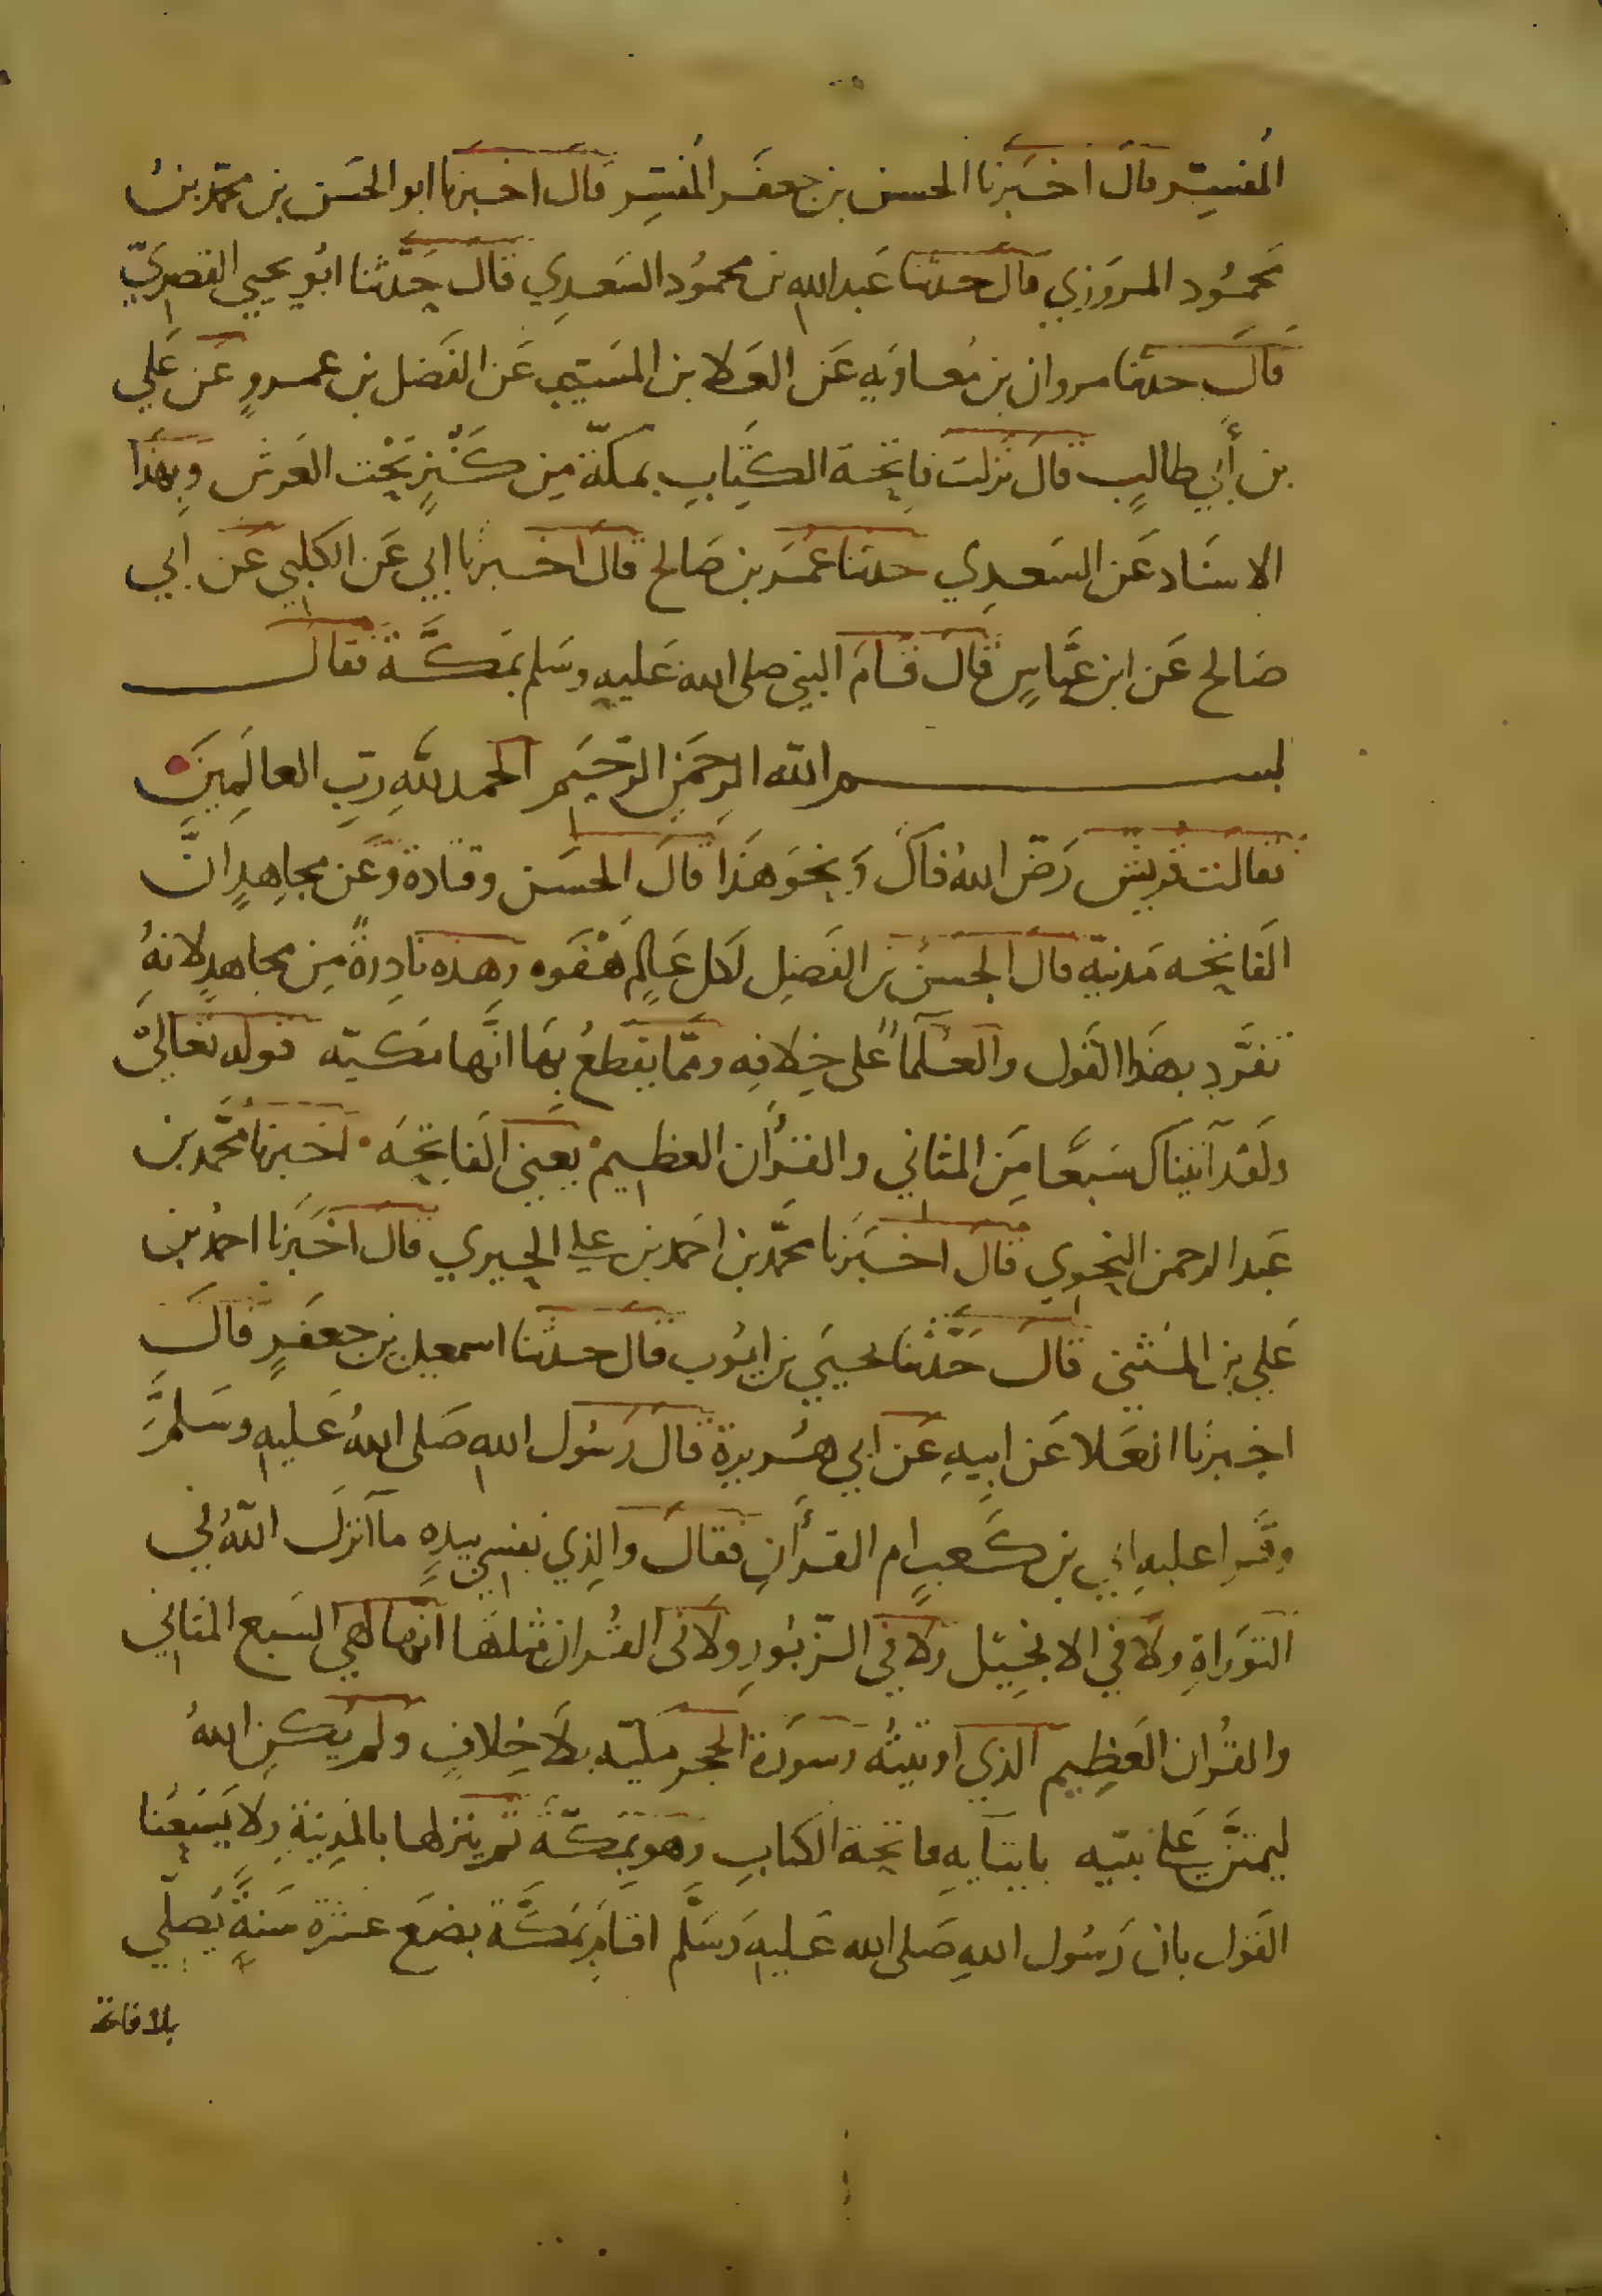 المُفسِّر قال اخبَرنا الحسن بن جعفَر المُفسِّر قال اخبَرنا ابو الحَسَن بن محمّد بنُ
مَحمُود المروَزي قال حدثنا عَبد الله بن محمُود السَعدِي قال حَدَّثنا ابُو يحيى القصرِيّ
قَالَ حدثنا مروان بن مُعاويه عَن العَلا بن المسَيّب عَن الفَضل بن عمروٍ عَن عَلي
بن أبي طالبٍ قال نزلت فاتحة الكِتَابِ بمكّة مِن كَنْزٍ تَحْت العَرش وَبِهَذا
الاسنَاد عَن السَعدِي حدثنا عُمَر بن صَالح قالَ اخبرنا ابي عَن الكَلبي عَن ابي
صَالح عَن ابن عَبَّاسٍ قال قَامَ النبي صلى الله عَليهِ وسَلم بمَكَّة فقال
بسم الله الرحمَن الرّحيَم الحمد للهِ ربِّ العالَمِينَ
فقالت قريش رَضّ اللهُ فاكَ وَنحوَ هَذَا قالَ الحَسَن وقتادة وَعَن مجاهِدٍ انّ
الفَاتحه مَدنيّه قال الحسنُ بن الفَضيل لكل عَالِم هَفْوَه وهذه نادِرةً مِن مجاهدٍ لانهُ
تفرَّد بهَذا القَول والعُلَماً على خِلافِه ومّما يقطعُ بهَا انَّها مكيّه قوله تعَالىَ
ولَقد آتيناك سَبعًا مِنَ المثاني والقُرأن العظيم يَعني الفاتِحَه اخبرنا محَّمد بن
عَبد الرحمن النحوي قال اخبَرَنا محَّمد بن احمَد بن علي الحِيري قال اخبَرنا احمد بن
عَلي بن المثنى قالَ حَدَّثنا يحيَى بن ايُوب قال حدثنا اسمعيل بن جعفَرٍ قالَ
اخبرنا العَلا عَن ابيهِ عَن ابي هُريرة قال رَسُول الله صَلى اللهُ عَليهِ وسَلمَّ
وقَرا عليهِ ابي بن كَعبٍ ام القرأنِ فقالَ والذِي نفسي بيدِهِ ما آنزلَ اللهُ في
التوَراةِ ولَا في الانجِيل ولا في الزّبُورِ ولَا في القُران مثلهَا انّها لهي السَبع المثاني
والقُران العَظِيم الذي اوتيتُه وسورَة الحجر مكيّه بلَا خِلافٍ ولم يَكنِ اللهُ
ليمتنَّ على نبيّه بايتايهِ فاتحة الكتابِ وَهو بمَكّةَ ثم ينزلها بالمَدِينةِ ولا يَسَعُنا
القَول بان رَسُول اللهِ صَلى الله عَليهِ وَسَلَّم اقامَ بمَكَّة بضعَ عشرة سَنةً يُصلّي
بلا فاتحة